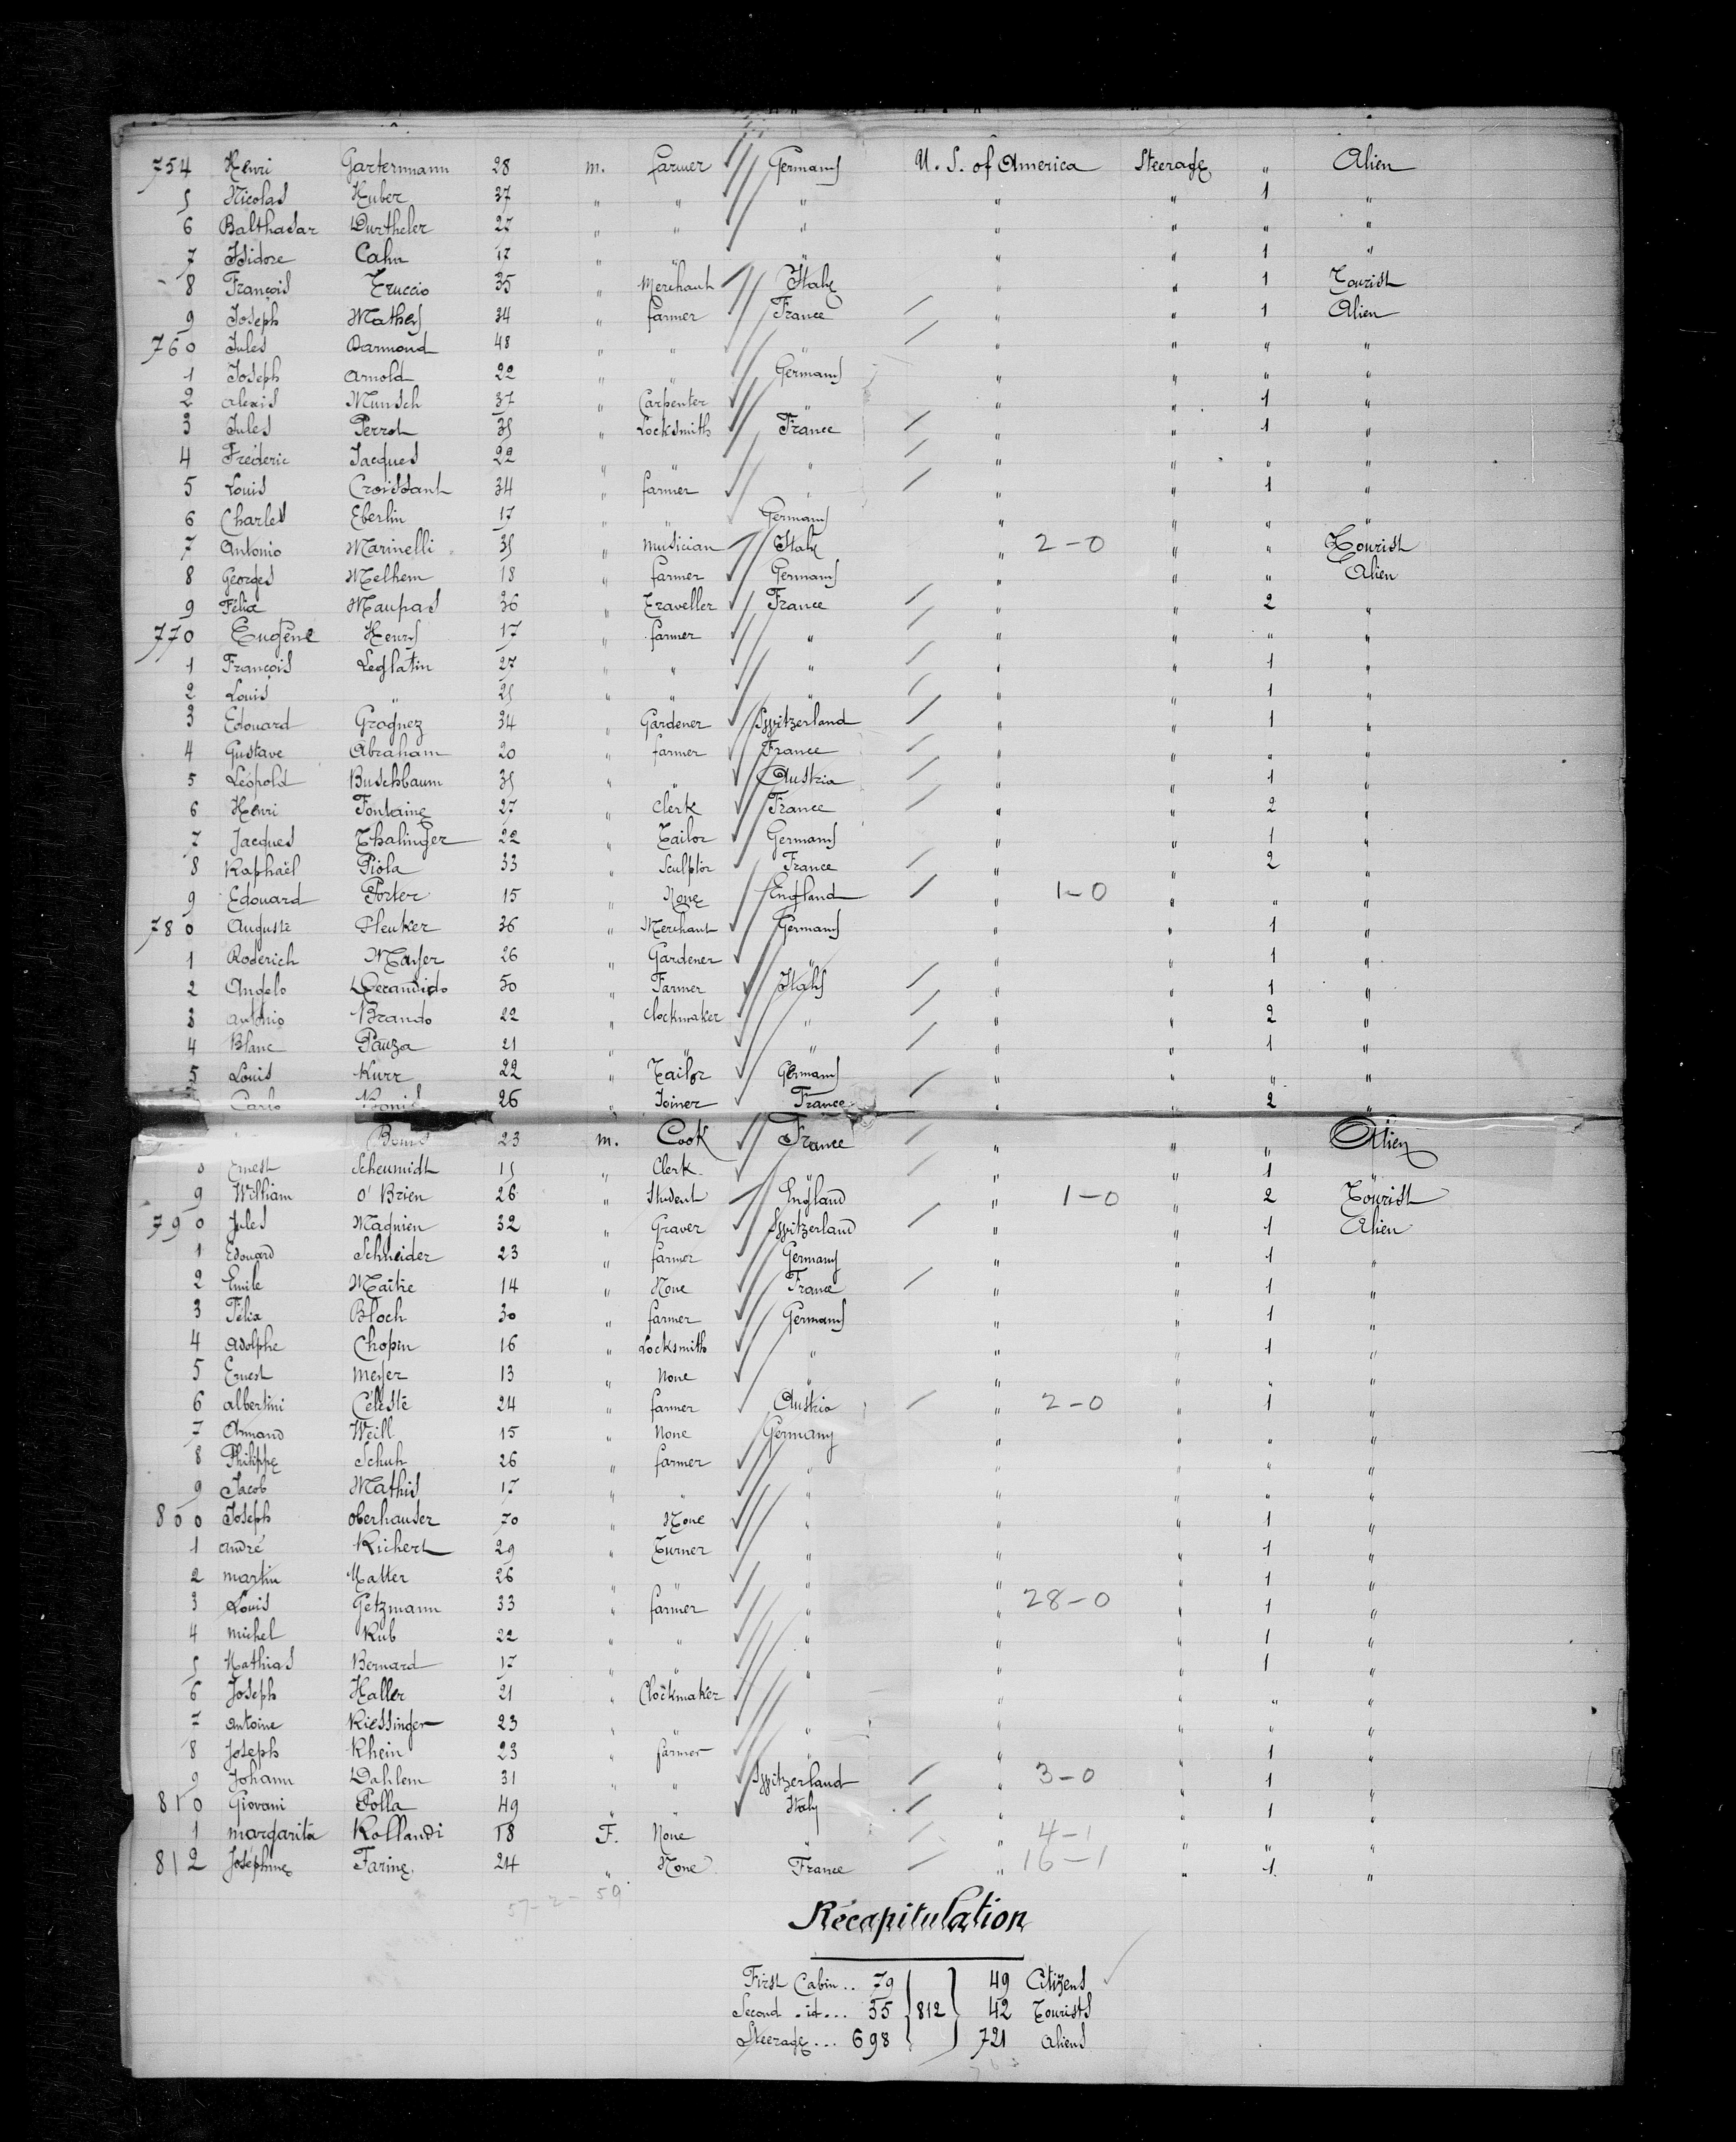 754 Henri Gartermann 28 m. farmer Germany U. S. of America Steerage " Alien
5 Nicolas Huber 37 " " " " " 1 "
6 Balthasar Durtheler 27 " " " " " " "
7 Isidore Cahn 17 " " " " " 1 "
8 François Truccio 35 " Merchant Italy " " 1 Tourist
9 Joseph Mathey 34 " farmer France " " 1 Alien
760 Jules Darmond 48 " " " " " " "
1 Joseph Arnold 22 " " Germany " " " "
2 Alexis Munsch 37 " Carpenter " " " 1 "
3 Jules Perrot 35 " Locksmith France " " 1 "
4 Fréderic Jacques 22 " " " " " " "
5 Louis Croissant 34 " farmer " " " 1 "
6 Charles Eberlin 17 " " Germany " " " "
7 Antonio Marinelli 35 " Musician Italy " 2-0 " " Tourist
8 Georges Melhem 18 " farmer Germany " " " Alien
9 Félix Maupas 36 " Traveller France " " 2 "
770 Eugène Henry 17 " farmer " " " " "
1 François Leglatin 27 " " " " " 1 "
2 Louis " 25 " " " " " 1 "
3 Edouard Grognez 34 " Gardener Switzerland " " 1 "
4 Gustave Abraham 20 " farmer France " " " "
5 Léopold Buschbaum 35 " " Austria " " 1 "
6 Henri Fontaine 27 " Clerk France " " 2 "
7 Jacques Thalinger 22 " Tailor Germany " " 1 "
8 Raphaël Piola 33 " Sculptor France " " 2 "
9 Edouard Porter 15 " None England " 1-0 " " "
780 Auguste Henker 36 " Merchant Germany " " 1 "
1 Roderich Mayer 26 " Gardener " " " 1 "
2 Angelo 50 " Farmer Italy " " 1 "
3 Antonio Brando 22 " Clockmaker " " " 2 "
4 Blanc Pauza 21 " " " " " 1 "
5 Louis Kurr 22 " Tailor Germany " " " "
Carlo 26 " Joiner France " " 2 "
23 m. Cook France " " " Alien
8 Ernest Scheumidt 15 " Clerk " " " 1 "
9 William O'Brien 26 " Student England " 1-0 " 2 Tourist
790 Jules Magnien 32 " Graver Switzerland " " 1 Alien
1 Edouard Schneider 23 " farmer Germany " " 1 "
2 Emile Maître 14 " None France " " 1 "
3 Félix Bloch 30 " farmer Germany " " 1 "
4 Adolphe Chopin 16 " Locksmith " " " 1 "
5 Ernest Meyer 13 " None " " " " "
6 Albertini Céleste 24 " farmer Austria " 2-0 " 1 "
7 Armand Weill 15 " None Germany " " " "
8 Philippe Schuh 26 " farmer " " " " "
9 Jacob Mathis 17 " " " " " " "
800 Joseph Oberhauser 70 " None " " " 1 "
1 André Richert 29 " Turner " " " 1 "
2 Martin Matter 26 " " " " " 1 "
3 Louis Getzmann 33 " farmer " " 28-0 " 1 "
4 Michel Kub 22 " " " " " 1 "
5 Mathias Bernard 17 " " " " " 1 "
6 Joseph Haller 21 " Clockmaker " " " " "
7 Antoine Kiessinger 23 " " " " " " "
8 Joseph Rhein 23 " farmer " " " 1 "
9 Johann Dahlem 31 " " Switzerland " 3-0 " 1 "
810 Giovani Polla 49 " " Italy " " 1 "
1 Margarita Rollandi 18 F. None " " 4-1 " " "
812 Joséphine Farine 24 " None France " 16-1 " 1 "
57-2-59
Récapitulation
First Cabin .. 79 49 Citizens
Second . id ... 35 812 42 Tourists
Steerage ... 698 721 Aliens